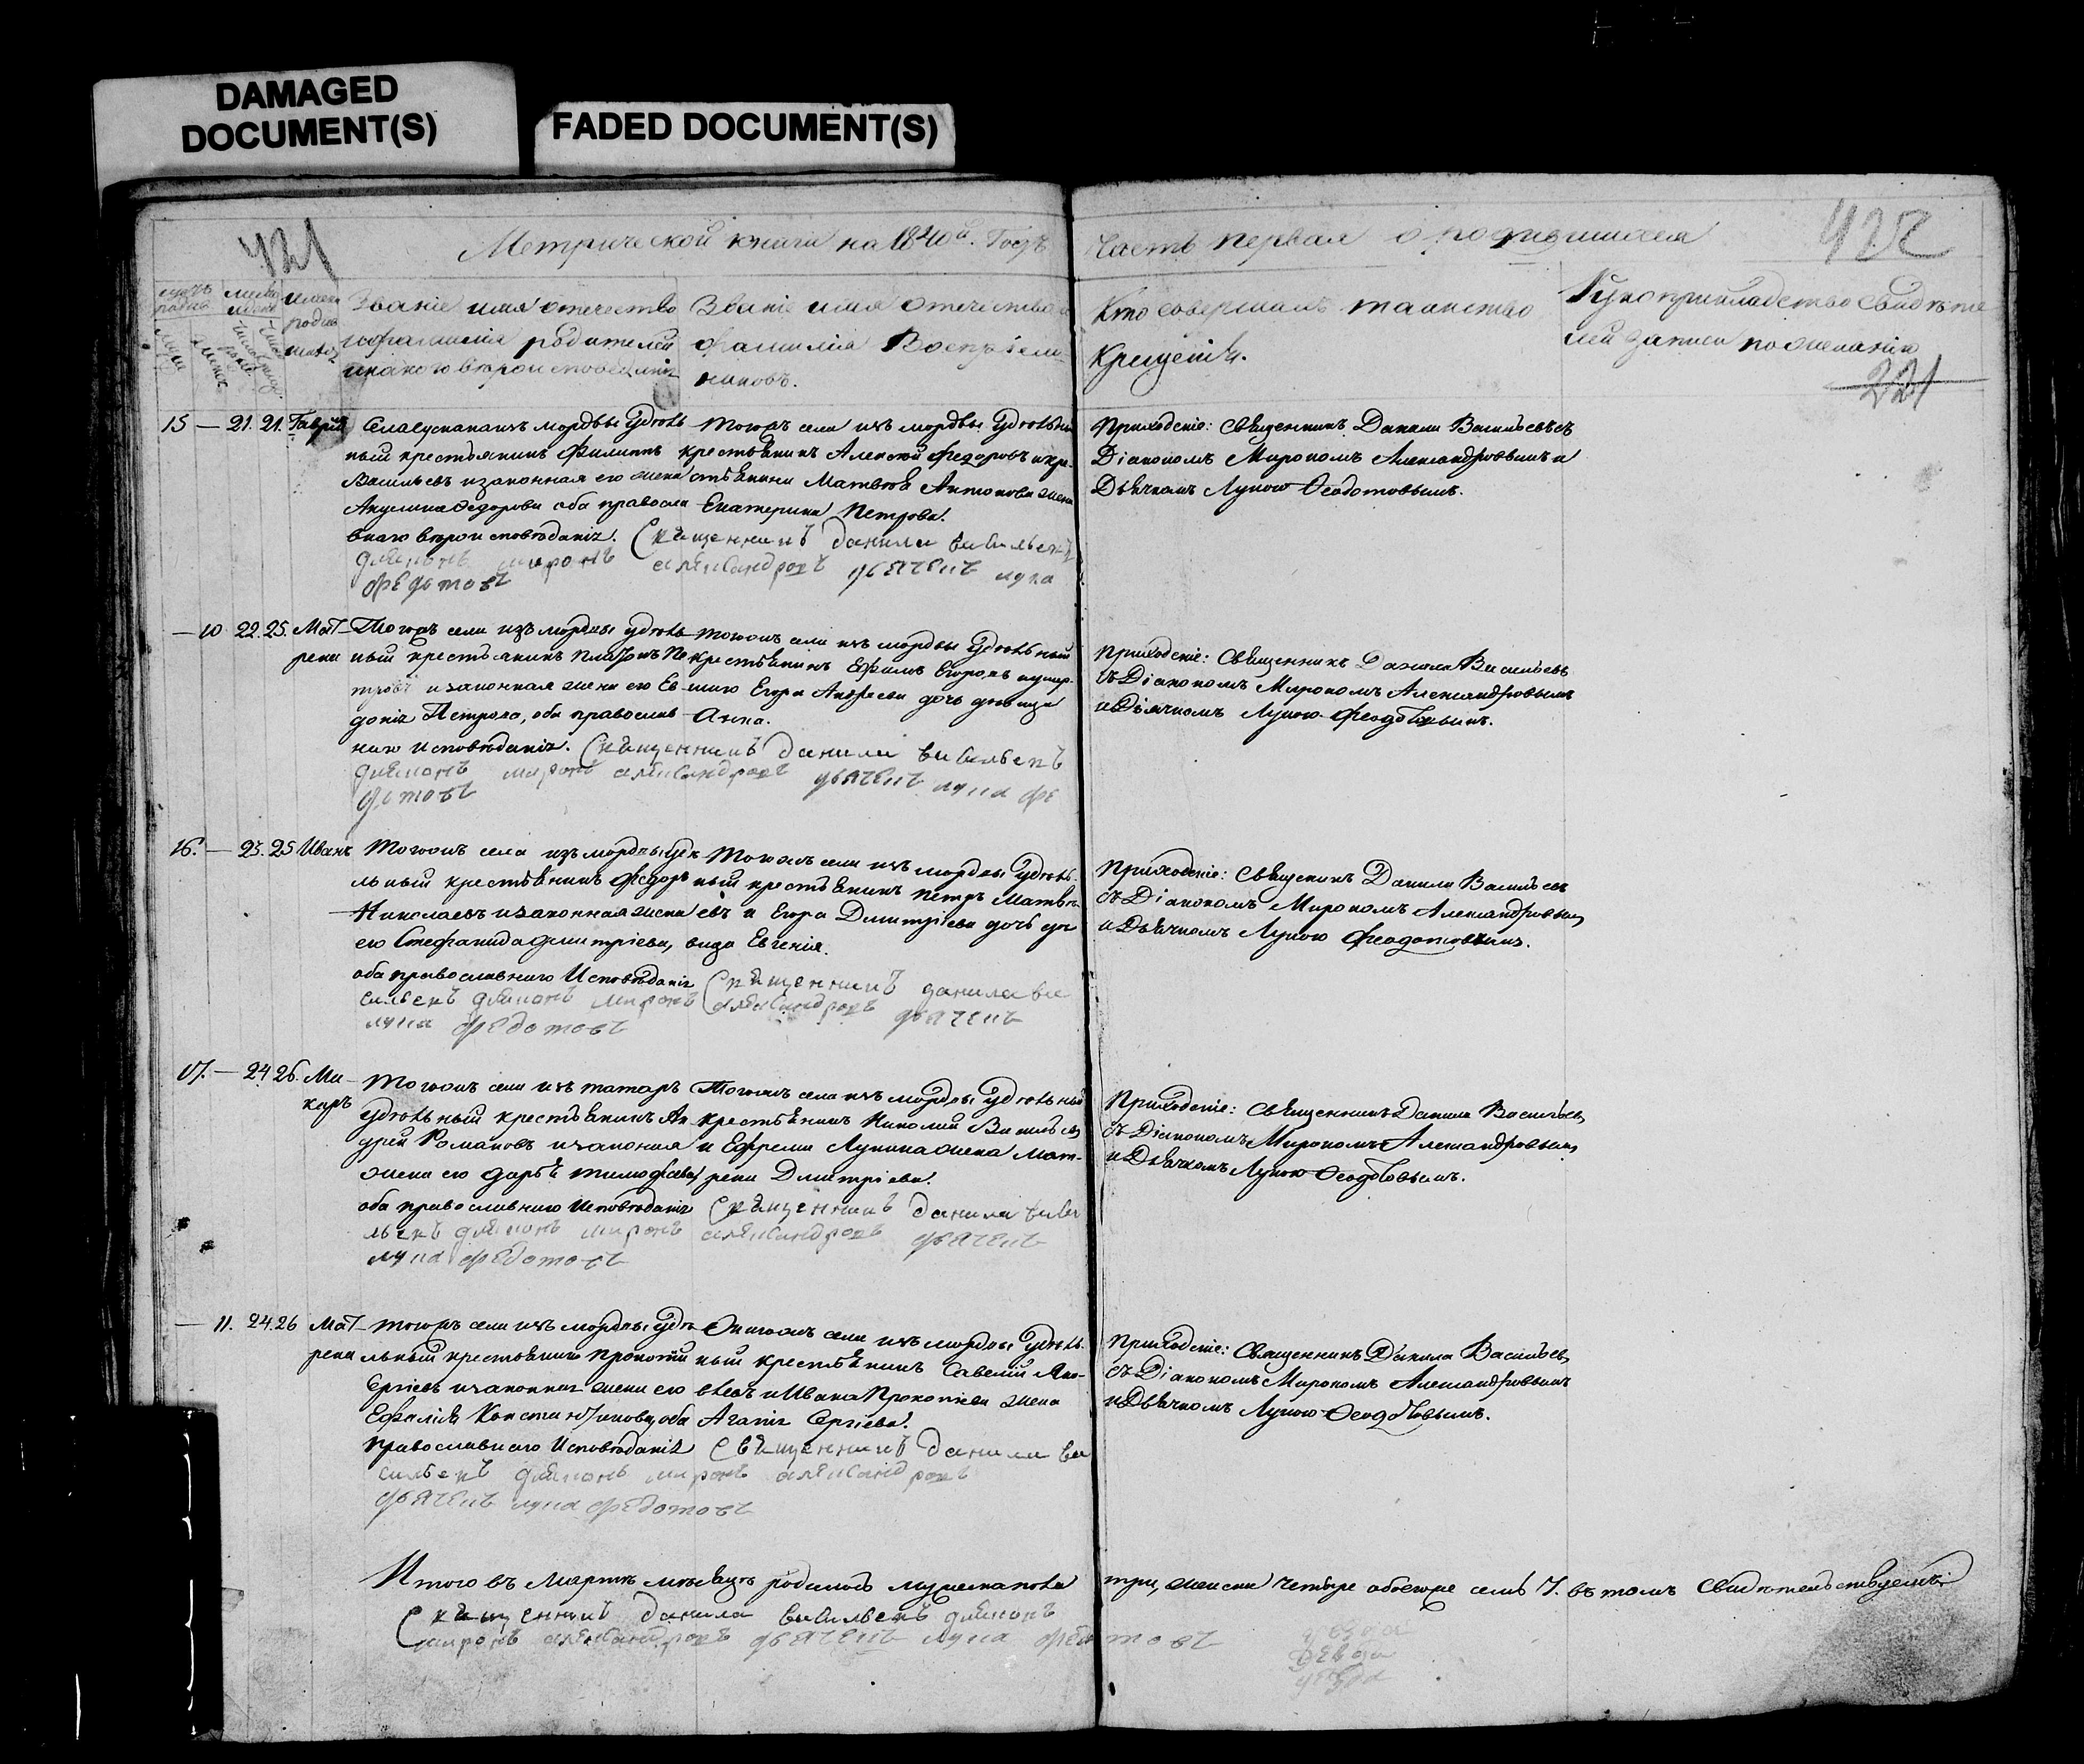 DAMAGED
DOCUMENT(S)
FADED DOCUMENT(S)
421
Метрической книги на 1840й. Годъ
Часть первая о родившихся
422
Званіе имя отечество
и фамилія родителей
и какого вѣроисповеданія
Званіе имя отечество и
фамилія Воспріем
никовъ.
Кто совершалъ таинство
Крещенія.
Рукоприкладство свидѣте
лей записи по желанію
221
15 — 21. 21. Гаврiилъ
изъ мордвы Удѣль
ный крестьянинъ Филиппъ
Васильевъ и законная его жена
Акулина Ѳедорова оба правосла
внаго вѣроисповѣданія.
Тогожъ села изъ мордвы Удѣльный
крестьянинъ Алексѣй Федоровъ и кре-
стьянина Матвея Антонова жена
Екатерина Петрова.
Священникъ данила васильевъ
диаконъ миронъ александровъ дьячекъ лука
федотовъ
Приходскіе: Священникъ Данила Васильевъ съ
Діакономъ Мирономъ Александровымъ и
Дьячкомъ Лукою Ѳеодотовымъ.
— 10 22. 25. Мат-
рена
Тогожъ села изъ мордвы удѣль
ный крестьянинъ Платонъ Пе
тровъ и законная жена его Ев
докія Петрова, оба православ
наго исповѣданія.
Тогожъ села изъ мордвы Удѣльный
крестьянинъ Ефимъ Егоровъ и умер-
шаго Егора Андреева дочь девица
Анна.
Священникъ данила васильевъ
диаконъ миронъ александровъ дьячекъ лука фе
дотовъ
Приходскіе: Священникъ Данила Васильевъ
съ Діакономъ Мирономъ Александровымъ
и Дьячкомъ Лукою Феодотовымъ.
16. — 23. 25 Иванъ
Тогожъ села изъ мордвы удѣ
льный крестьянинъ Федоръ
Николаевъ и законная жена
его Стефанида Дмитріева,
оба православнаго Исповѣданія
Тогожъ села изъ мордвы Удѣль
ный крестьянинъ Петръ Матвѣ
евъ и Егора Дмитріева дочь де
вица Евгенія.
Священникъ данила ва
сильевъ диаконъ миронъ александровъ дьячекъ
лука федотовъ
Приходскіе: Священникъ Данила Васильевъ
съ Діакономъ Мирономъ Александровымъ
и Дьячкомъ Лукою Феодотовымъ.
17. — 24 26. Ма-
каръ
Тогожъ села изъ татаръ
Удѣльный крестьянинъ Ан
дрей Романовъ и законная
жена его Дарья Тимофеева,
оба православнаго Исповѣданія
Тогожъ села изъ мордвы Удѣльный
крестьянинъ Николай Васильевъ
и Ефрема Лукина жена Мат-
рена Дмитріева.
Священникъ данила васи
льевъ диаконъ миронъ александровъ дьячекъ
лука федотовъ
Приходскіе: Священникъ Данила Васильевъ
съ Діакономъ Мирономъ Александровымъ
и Дьячкомъ Лукою Ѳеодотовымъ.
— 11. 24. 26 Мат-
рена
Тогожъ села изъ мордвы удѣ
льный крестьянинъ Прокофій
Сергіевъ и законная жена его
Константинова, оба
православнаго Исповѣданія
села изъ мордвы Удѣль
ный крестьянинъ Савелій Яко-
влевъ и Ивана Прокопіева жена
Агапія Сергіева.
Священникъ данила ва
сильевъ диаконъ миронъ александровъ
дьячекъ лука федотовъ
Приходскіе: Священникъ Данила Васильевъ
съ Діакономъ Мирономъ Александровымъ
и Дьячкомъ Лукою Ѳеодотовымъ.
Итого въ Мартѣ мѣсяцѣ родилось мужеска пола три, женска четыре обоего семь 7. въ томъ свидѣтельствуемъ
Священникъ данила васильевъ диаконъ
миронъ александровъ дьячекъ лука федотовъ